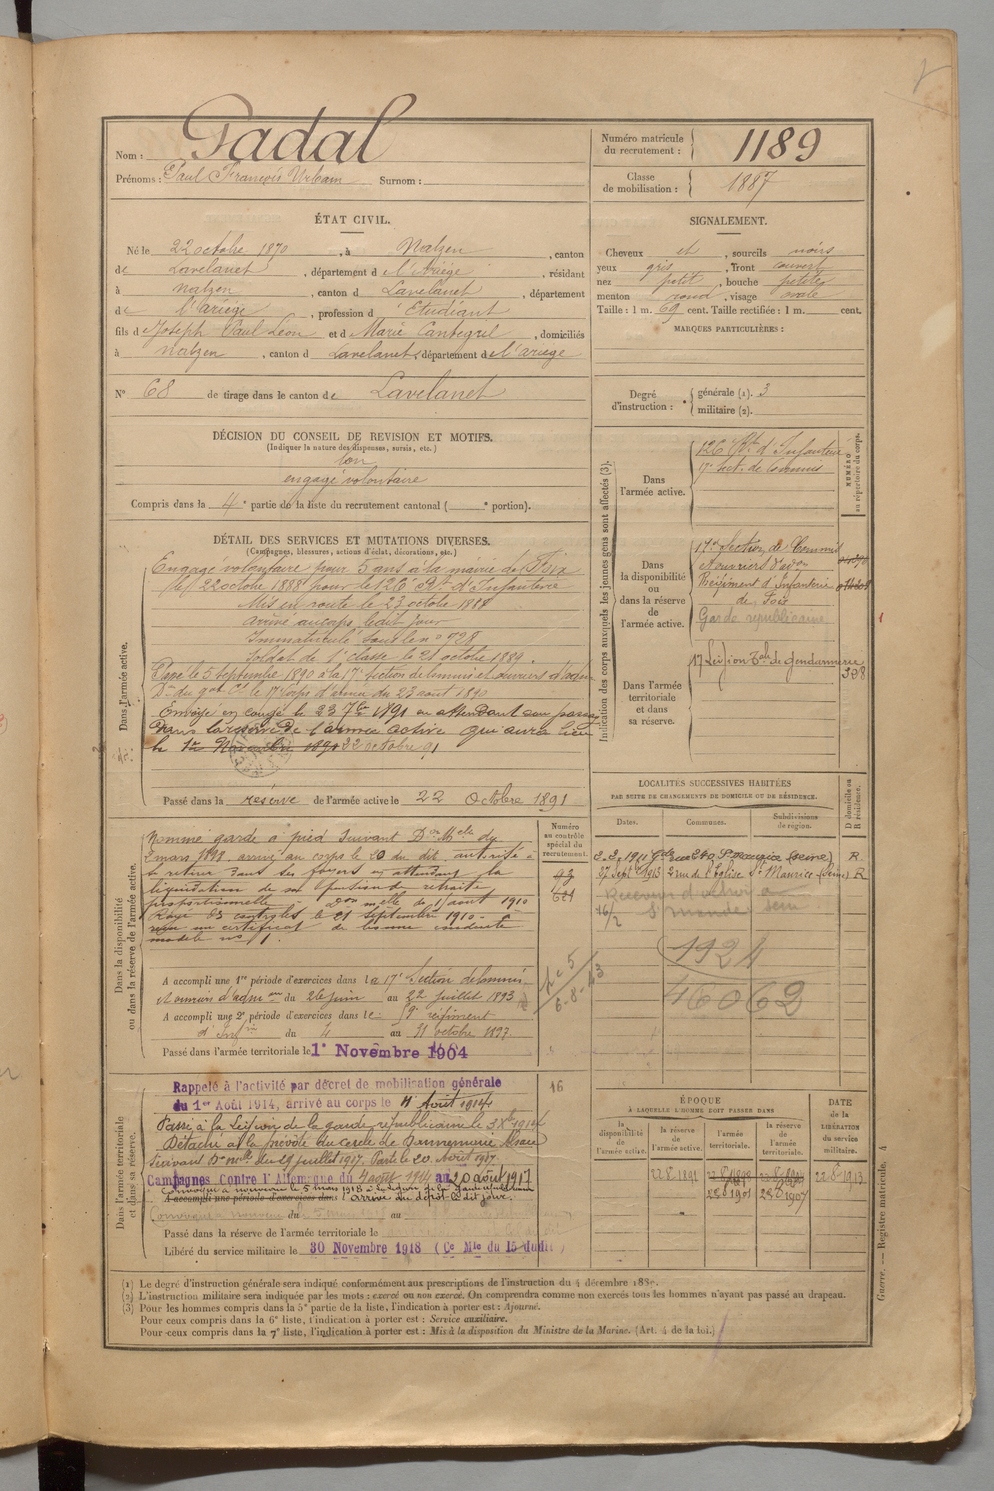 Nom : Padal
Prénoms : Paul François Urbain Surnom :
Numéro matricule du recrutement : 1189
Classe de mobilisation : 1887
ÉTAT CIVIL.
Né le 22 octobre 1870, à Nalzen, canton
de Lavelanet, département de l'Ariège, résidant
à Nalzen, canton de Lavelanet, département
de l'ariège, profession d'Etudiant
fils de Joseph Paul Léon et de Marie Cantegrel, domiciliés
à Nalzen, canton de Lavelanet, département de l'ariège
N° 68 de tirage dans le canton de Lavelanet
SIGNALEMENT.
Cheveux et, sourcils noirs
yeux gris, front couvert
nez petit, bouche petite
menton rond, visage ovale
Taille : 1 m. 69 cent. Taille rectifiée : 1 m. cent.
MARQUES PARTICULIÈRES :
Degré d'instruction : générale (1). 3
militaire (2).
DÉCISION DU CONSEIL DE REVISION ET MOTIFS.
(Indiquer la nature des dispenses, sursis, etc.)
bon
engagé volontaire
Compris dans la 4e partie de la liste du recrutement cantonal ( e portion).
DÉTAIL DES SERVICES ET MUTATIONS DIVERSES.
(Campagnes, blessures, actions d'éclat, décorations, etc.)
Dans l'armée active.
Engagé volontaire pour 3 ans à la mairie de Foix
le 22 octobre 1888 pour le 126e Rt d'Infanterie
Mis en route le 23 octobre 1888
Arrivé au corps ledit jour
Immatriculé sous le n° 528
Soldat de 1e classe le 21 octobre 1889.
Passé le 5 septembre 1890 à la 17e Section de commis et ouvriers d'adon
Don du gal Ct le 17e corps d'armée du 23 aout 1890
Envoyé en congé le 23 7bre 1891 en attendant son passage
dans la réserve de l'armée active qui aura lieu
le 1er Novembre 1891 22 octobre 91
Passé dans la réserve de l'armée active le 22 Octobre 1891
Indication des corps auxquels les jeunes gens sont affectés (3).
NUMÉRO au répertoire du corps.
Dans l'armée active.
126 Rt d'Infanterie
17e sect. de Commis
Dans la disponibilité ou dans la réserve de l'armée active.
17e Section de Commis
et ouvriers d'adon
Régiment d'Infanterie
de Foix
Garde républicaine
17 Légion Tale de Gendarmerie
328
Dans l'armée territoriale et dans sa réserve.
Dans la disponibilité ou dans la réserve de l'armée active.
Nommé garde à pied suivant Don Melle du
2 mars 1893, arrivé au corps le 20 du dit, autorisé à
se retirer dans ses foyers en attendant la
liquidation de sa pension de retraite
proportionnelle Don melle de 1 aout 1910
Rayé des contrôles le 21 septembre 1910 - a
reçu un certificat de bonne conduite
modèle n° 1.
Numéro au contrôle spécial du recrutement.
A accompli une 1re période d'exercices dans la 17e Section de Commis
et ouvriers d'admon du 26 juin au 22 juillet 1893
A accompli une 2e période d'exercices dans le 59e régiment
d'Infrie du 4 au 31 octobre 1897
Passé dans l'armée territoriale le 1er Novembre 1904
LOCALITÉS SUCCESSIVES HABITÉES
PAR SUITE DE CHANGEMENTS DE DOMICILE OU DE RÉSIDENCE.
Dates. Communes. Subdivisions de region. D domicile ou R résidence.
St Maurice (Seine) R.
27 Sept 1913 2 rue de l'Eglise St Maurice (Seine) R
1924
46062
Dans l'armée territoriale et dans sa réserve.
Rappelé à l'activité par décret de mobilisation générale
du 1er Août 1914, arrivé au corps le 4 Août 1914.
Passé à la Légion de la garde républicaine le 3 Xbre 1914
Détaché à la prévôté du cercle de Dannemarie Alsace
Suivant Don mlle du 29 juillet 1917. Parti le 20 Août 1917.
Campagnes Contre l'Allemagne du 4 août 1914 au 20 août 1917
A accompli une période d'exercices dans
du au
Passé dans la réserve de l'armée territoriale le
Libéré du service militaire le 30 Novembre 1918 (Ce Mle du 15 dudit)
16
ÉPOQUE
À LAQUELLE L'HOMME DOIT PASSER DANS
la disponibilité de l'armée active. la réserve de l'armée active. l'armée territoriale. la réserve de l'armée territoriale.
DATE de la LIBÉRATION du service militaire.
22 8 1891
22 8 1901
22 8 1907
22 8 1913
(1) Le degré d'instruction générale sera indiqué conformément aux prescriptions de l'instruction du 4 décembre 1889.
(2) L'instruction militaire sera indiquée par les mots : exercé ou non exercé. On comprendra comme non exercés tous les hommes n'ayant pas passé au drapeau.
(3) Pour les hommes compris dans la 5e partie de la liste, l'indication à porter est : Ajourné.
Pour ceux compris dans la 6e liste, l'indication à porter est : Service auxiliaire.
Pour ceux compris dans la 7e liste, l'indication à porter est : Mis à la disposition du Ministre de la Marine. (Art. 4 de la loi.)
Guerre. — Registre matricule. 4